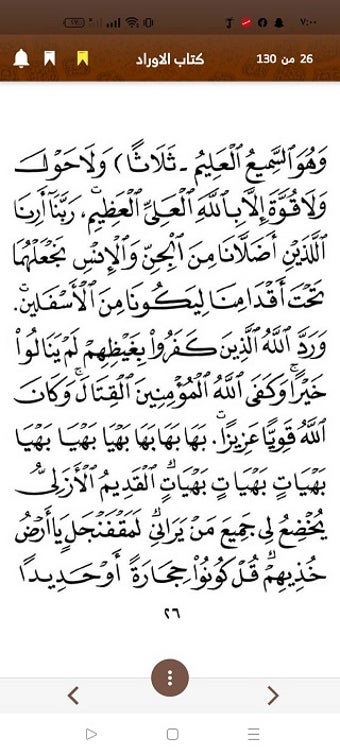 ٧:٠٠
26 من 130
كتاب الاوراد
وَهُوَ السَّمِيعُ الْعَلِيمُ ـ ثَلَاثًا) وَلَا حَوْلَ
وَلَا قُوَّةَ إِلَّا بِاللَّهِ الْعَلِيِّ الْعَظِيمِ، رَبَّنَا أَرِنَا
اللَّذَيْنِ أَضَلَّانَا مِنَ الْجِنِّ وَالْإِنْسِ نَجْعَلْهُمَا
تَحْتَ أَقْدَامِنَا لِيَكُونَا مِنَ الْأَسْفَلِينَ.
وَرَدَّ اللَّهُ الَّذِينَ كَفَرُوا بِغَيْظِهِمْ لَمْ يَنَالُوا
خَيْرًا وَكَفَى اللَّهُ الْمُؤْمِنِينَ الْقِتَالَ وَكَانَ
اللَّهُ قَوِيًّا عَزِيزًا. بَهَا بَهَا بَهَا بَهْيَا بَهْيَا بَهْيَا
بَهْيَاتٍ بَهْيَاتٍ بَهْيَاتٍ الْقَدِيمُ الْأَزَلِيُّ
يُخْضِعُ لِي جَمِيعَ مَنْ يَرَانِي لَمَقْفَنْجَلٍ يَا أَرْضُ
خُذِيهِمْ قُلْ كُونُوا حِجَارَةً أَوْ حَدِيدًا
٢٦